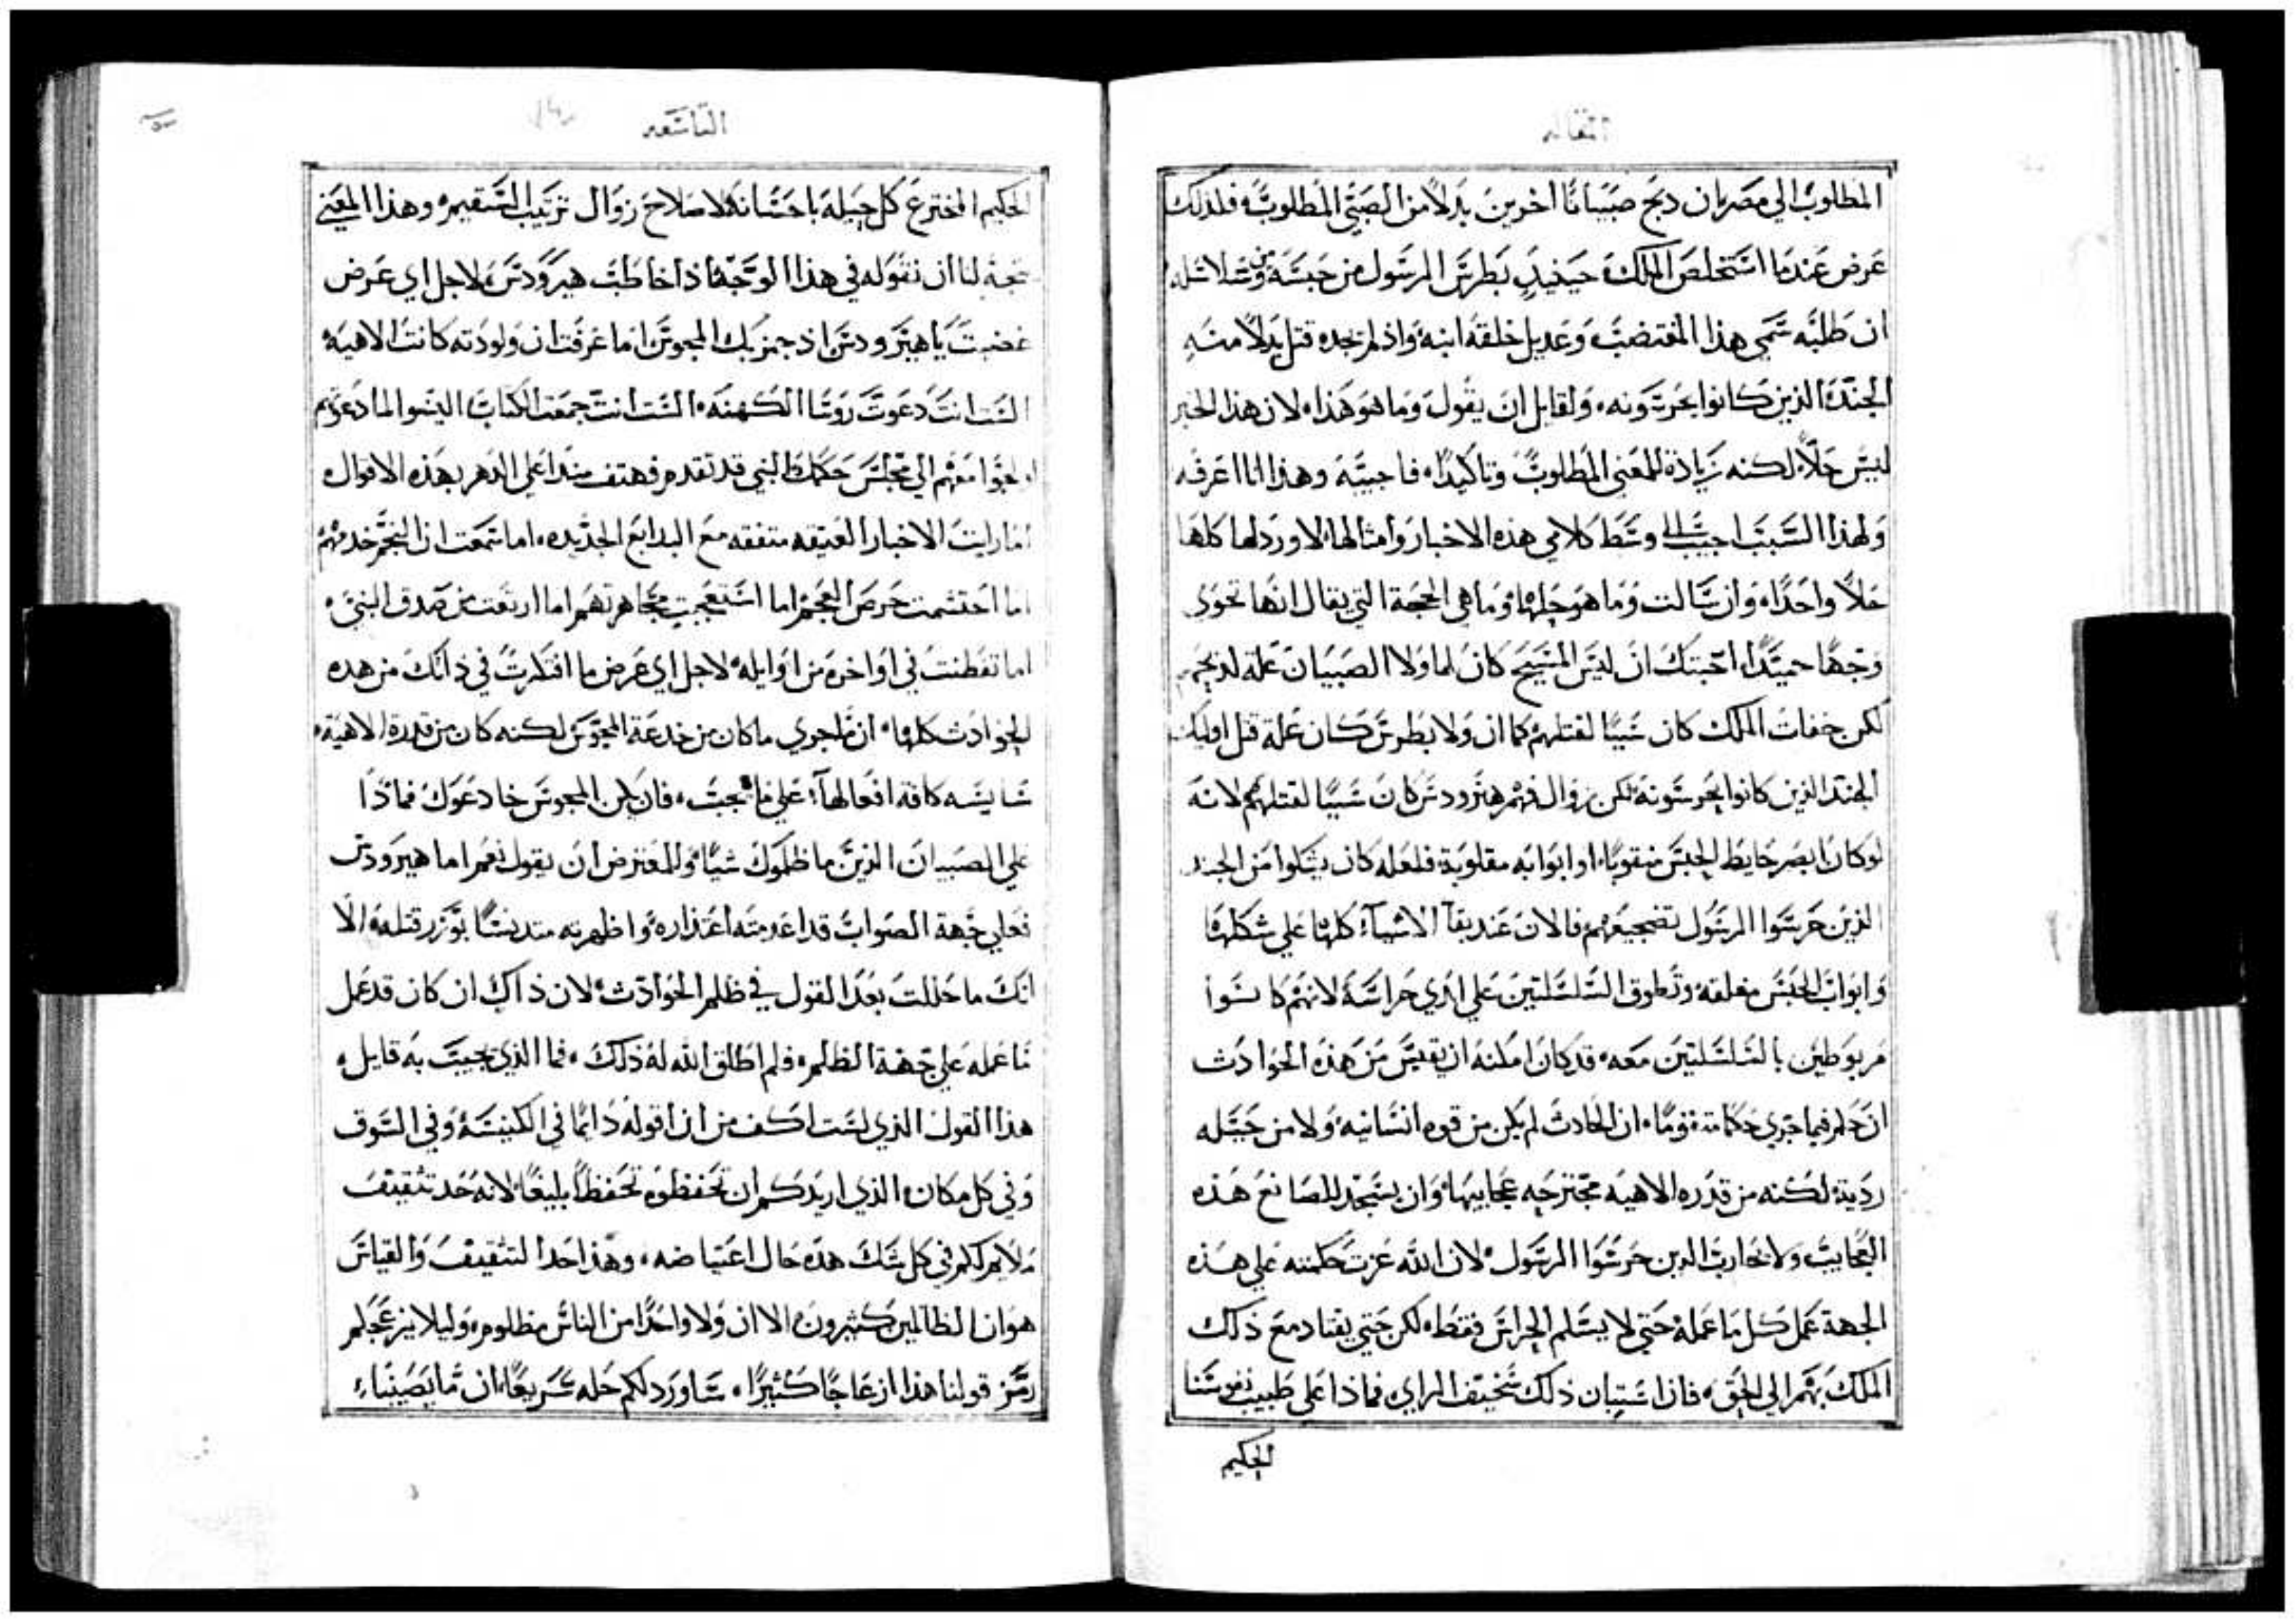 المقاله
المطلوب الي مصر بان دبح صبيانا اخرين بدلا من الصبي المطلوب فلذلك
عرض عندما استخلص الملك حينيد بطرس الرسول من حبسه ومن سلاسله
ان طلبه سمي هذا المغتضب وعديل خلقه ابنه واذ لم تجده قتل بدلا منه
الجند الذين كانوا يحرسونه ولقايل ان يقول وما هو هذا لان هذا الخبر
ليس حلا لكنه زيادة للمعني المطلوب وتاكيدا فاجيبه وهذا انا اعرفه
ولهذا السبب اجيب الي وسط كلامي هذه الاخبار وامثالها لاورد لها كلها
حلا واحدا وان سالت وما هو حلها وما هي الحجة التي يقال انها تحوي
وجها حميدا اجبتك ان ليس المسيح كان لما ولا الصبيان علة لدبحهم
لكن جفات الملك كان سببا لقتلهم كما ان ولا بطرس كان علة قتل اوليك
الجند الذين كانوا يحرسونه لكن زوال فهم هيرودس كان سببا لقتلهم لانه
لو كان ابصر حايط الحبس منقوبا او ابوابه مقلوبة فلعله كان يشكوا من الجند
الذين حرسوا الرسول تضجيعهم فالان عند بقآ الاشيآء كلها علي شكلها
وابواب الحبس مغلقه وتطوق السلسلتين علي ايدي حراسه لانهم كانوا
مربوطين بالسلسلتين معه قد كان امكنه ان يقيس من هذه الحوادث
ان حكم فيما جري حكما مقوما ان الحادث لم يكن من قوه انسانيه ولا من حيله
ردية لكنه من قدره الاهيه مجترحه عجايبها وان يسجد للصانع هذه
العجايب ولا يحارب الدين حرسوا الرسول لان الله عزت حكمته علي هذه
الجهة عمل كل ما عمله حتي لا يسلم الحراس فقط لكن حتي يقتاد مع ذلك
الملك بهم الي الحق فان استبان ذلك سخيف الراي فماذا علي طبيب نفوسنا
الحكيم
التاسعه
الحكيم المخترع كل حيله باحسانه لاصلاح زوال ترتيب السقيم وهذا المعني
يتجه لنا ان نقوله في هذا الوجه اذا خاطبت هيرودس لاجل اي عرض
غضبت يا هيرودس اذ جهز بك المجوس اما عرفت ان ولودته كانت الاهيه
الست انت دعوت روسا الكهنه الست انت جمعت الكتاب اليسوا لما دعوتهم
معهم الي مجلس حكمك النبي قد تقدم فهتف منذ اعلي الدهر بهذه الاقوال
اما رايت الاخبار العتيقه متفقه مع البدايع الجديده اما سمعت ان النجم خدمهم
اما احتشمت حرص العجم اما استعجبت مجاهرتهم اما ارتعت من صدق النبي
اما تفطنت في اواخره من اوايله لاجل اي عرض ما افتكرت في ذاتك من هذه
الحوادث كلها ان ما جري ما كان من خدعة المجوس لكنه كان من قدرة الاهيه
سايسه كافة افعالها علي ما يجب فان يكن المجوس خادعوك فماذا
علي الصبيان الذين ما ظلموك شيا وللمعترض ان يقول نعم اما هيرودس
فعلي جهة الصواب قد اعدمته اعتذاره واظهرته متدنسا بوزر قتله الا
انك ما حللت بعد القول في ظلم الحوادث لان ذاك ان كان قد عمل
ما عمله علي جهة الظلم فلم اطلق الله له ذلك فما الذي نجيب به قايل
هذا القول الذي لست اكف من ان اقوله دايما في الكنيسه وفي السوق
وفي كل مكان الذي اريدكم ان تحفظوه تحفظا بليغا لانه حد تثقيف
ملايم لكم في كل شك هذه حال اعتياضه وهذا حد التثقيف والقياس
هو ان الظالمين كثيرون الا ان ولا واحدا من الناس مظلوم وليلا يزعجكم
رمز قولنا هذا ازعاجا كثيرا ساورد لكم حله سريعا ان ما يصيبنا